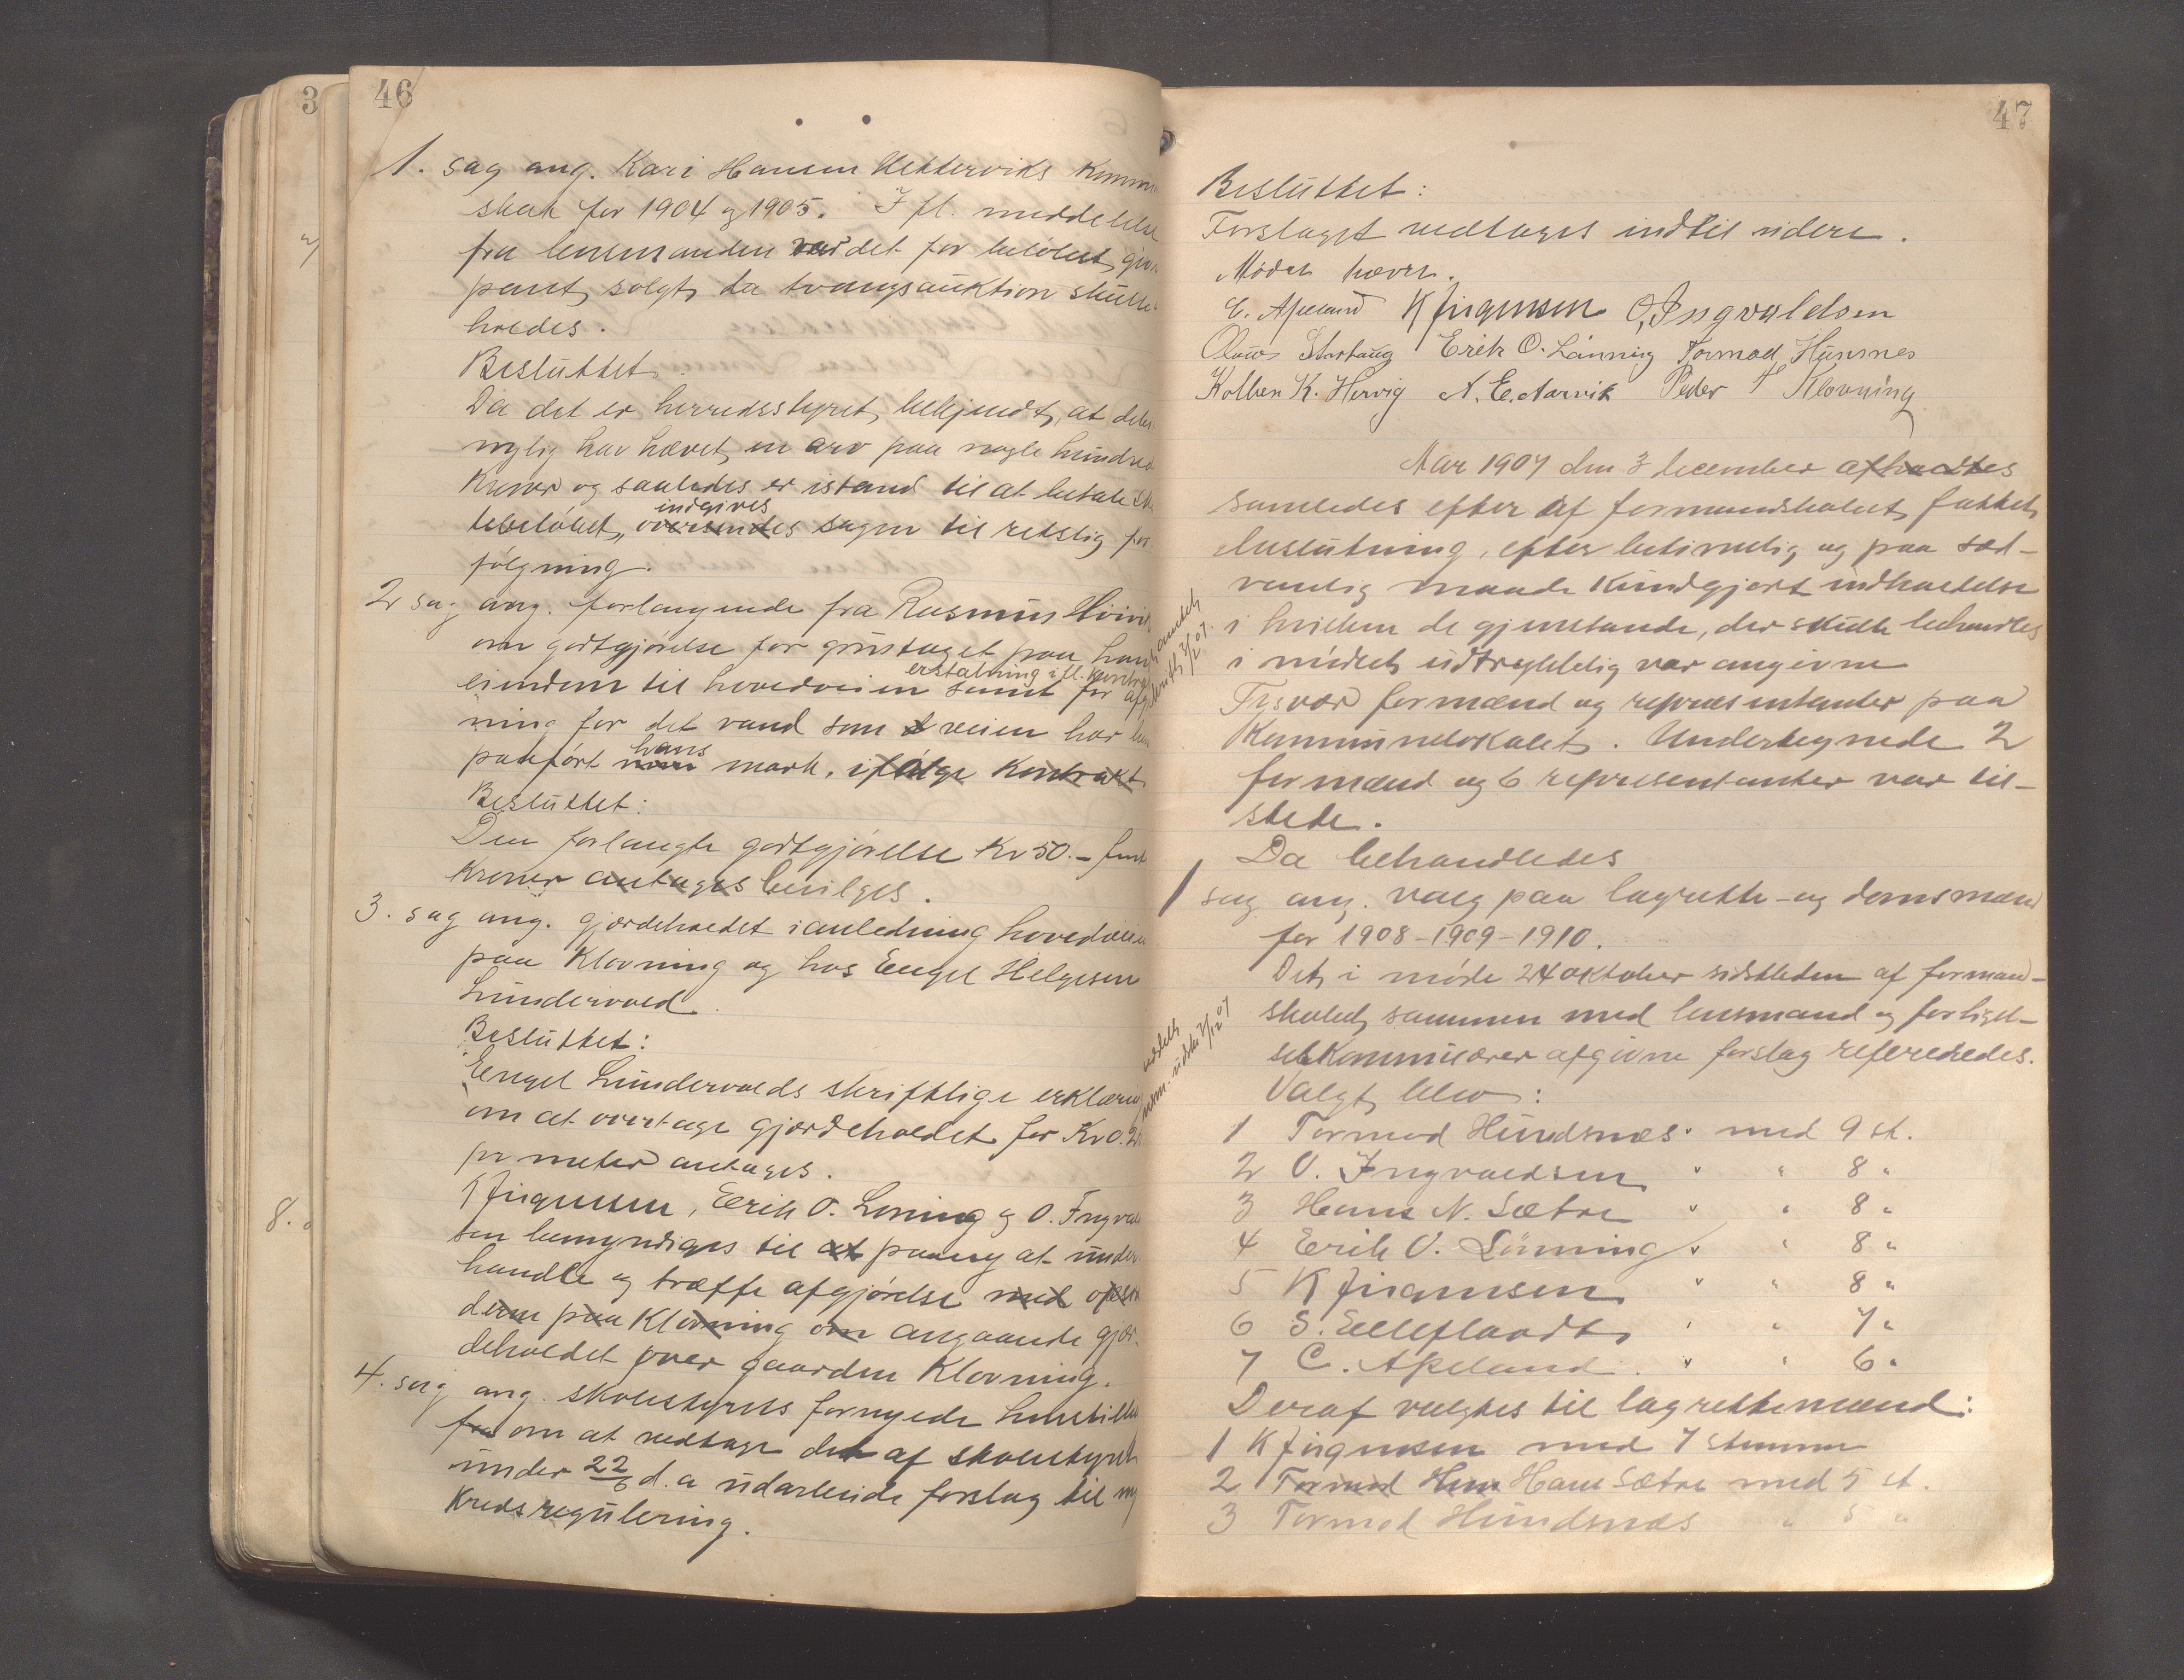 46
1. sag ang. Kari Hansen Vettervik's Kommu
skat for 1904 og 1905. Ifl. meddelelse
fra lensmanden var det for beløbet givne
pant solgt da tvangsauktion skulde
holdes.
Besluttet
Da det er herredsstyret bekjendt, at
nylig har hævet en arv paa nogle hundred
Kroner og saaledes er istand til at betale
indgives
tebeløbet, oversendes sagen til retslig for-
følgning.
2 sag ang. forlangende fra Rasmus
om godtgjørelse for grustaget paa hans
erstatning ifl. kontrakt
eiendom til hovedveien samt for
ning for det vand som veien har
hans
paaført mark. ifølge Kontrakt
Besluttet:
Den forlangte godtgjørelse Kr 50.-
Kroner antages bevilges.
3. sag ang. gjærdeholdet i anledning hovedveien
paa Klovning og hos Engel Helgesen
Lundervold.
Besluttet:
Engel Lundervolds skriftlige erklæring
om at overtage gjærdeholdet for Kr 0.
pr meter antages.
K Jørgensen, Erik O. Lønning og O. Ingvald
sen bemyndiges til at paany at under
handle og træffe afgjørelse med opsid
derne paa Klovning om angaaende gjær-
deholdet over gaarden Klovning.
4. sag ang. skolestyrets fornyede henstillen
fra om at vedtage det af skolestyret
under 22/6 d.a udarbeide forslag til ny
Kredsregulering.
47
Besluttet:
Forslaget vedtages indtil videre.
Mødet hævet.
C. Apeland K Jørgensen O. Ingvaldsen
Erik O. Lønning Tormod Hunsnes
Kolben K. Hervig A. E. Aarvik Peder T Klovning
Aar 1907 den 3 december afholdtes
samledes efter af formandskabet fattet
beslutning, efter betimelig og paa sæd-
vanlig maade Kundgjort indkaldelse
i hvilken de gjenstande, der skulle behandles
i mødet udtrykkelig var angivne
Tysvær formænd og repræsentanter paa
Kommunelokalet. Undertegnede 2
formænd og 6 representanter var til-
stede.
Da behandledes
1 sag ang. valg paa lagrette- og domsmænd
for 1908-1909-1910.
Det i møde 24 oktober sidstleden af formand-
skabet sammen med lensmand og forligel-
seskommisærer afgivne forslag refereredes.
Valgt blev:
1 Tormod Hundsnæs med 9 st.
2 O. Ingvaldsen " " 8 "
3 Hans N. Sætre " " 8 "
4 Erik O. Lønning " " 8 "
5 K Jørgensen " " 8 "
6 S. Elleflaadt " " 7 "
7 C. Apeland " " 6 "
Deraf valgtes til lagrettemænd:
1 K Jørgensen med 7 stemmer
2 Tormod Hun Hans Sætre med 5 st.
3 Tormod Hundsnæs " 5 "